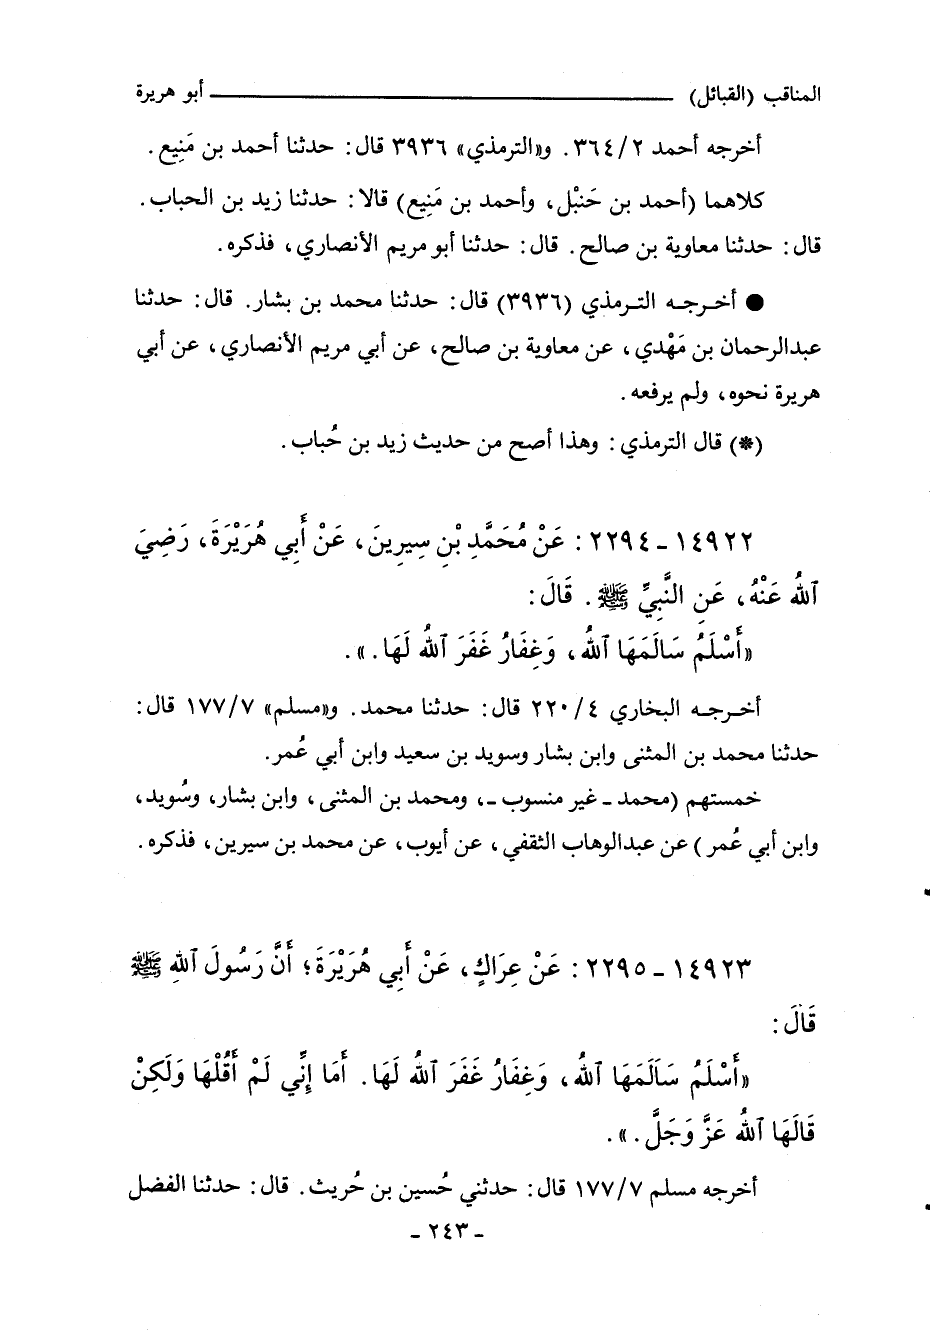 المناقب (القبائل) ــــــــــــــــــــ أبو هريرة
أخرجه أحمد ٣٦٤/٢. و«الترمذي» ٣٩٣٦ قال: حدثنا أحمد بن مَنِيع.
كلاهما (أحمد بن حَنبْل، وأحمد بن مَنِيع) قالا: حدثنا زيد بن الحباب.
قال: حدثنا معاوية بن صالح. قال: حدثنا أبو مريم الأنصاري، فذكره.
● أخرجه الترمذي (٣٩٣٦) قال: حدثنا محمد بن بشار. قال: حدثنا
عبدالرحمان بن مَهْدي، عن معاوية بن صالح، عن أبي مريم الأنصاري، عن أبي
هريرة نحوه، ولم يرفعه.
(*) قال الترمذي: وهذا أصح من حديث زيد بن حُباب.
١٤٩٢٢ - ٢٢٩٤: عَنْ مُحَمَّدِ بْنِ سِيرِينَ، عَنْ أَبِي هُرَيْرَةَ، رَضِيَ
ٱللهُ عَنْهُ، عَنِ النَّبِيِّ ﷺ. قَالَ:
«أَسْلَمُ سَالَمَهَا ٱللهُ، وَغِفَارُ غَفَرَ ٱللهُ لَهَا.».
أخرجه البخاري ٢٢٠/٤ قال: حدثنا محمد. و«مسلم» ١٧٧/٧ قال:
حدثنا محمد بن المثنى وابن بشار وسويد بن سعيد وابن أبي عُمر.
خمستهم (محمد ـ غير منسوب ـ، ومحمد بن المثنى، وابن بشار، وسُويد،
وابن أبي عُمر) عن عبدالوهاب الثقفي، عن أيوب، عن محمد بن سيرين، فذكره.
١٤٩٢٣ - ٢٢٩٥: عَنْ عِرَاكٍ، عَنْ أَبِي هُرَيْرَةَ؛ أَنَّ رَسُولَ ٱللهِ ﷺ
قَالَ:
«أَسْلَمُ سَالَمَهَا ٱللهُ، وَغِفَارُ غَفَرَ ٱللهُ لَهَا. أَمَا إِنِّي لَمْ أَقُلْهَا وَلَكِنْ
قَالَهَا ٱللهُ عَزَّ وَجَلَّ.».
أخرجه مسلم ١٧٧/٧ قال: حدثني حُسين بن حُريث. قال: حدثنا الفضل
- ٢٤٣ -